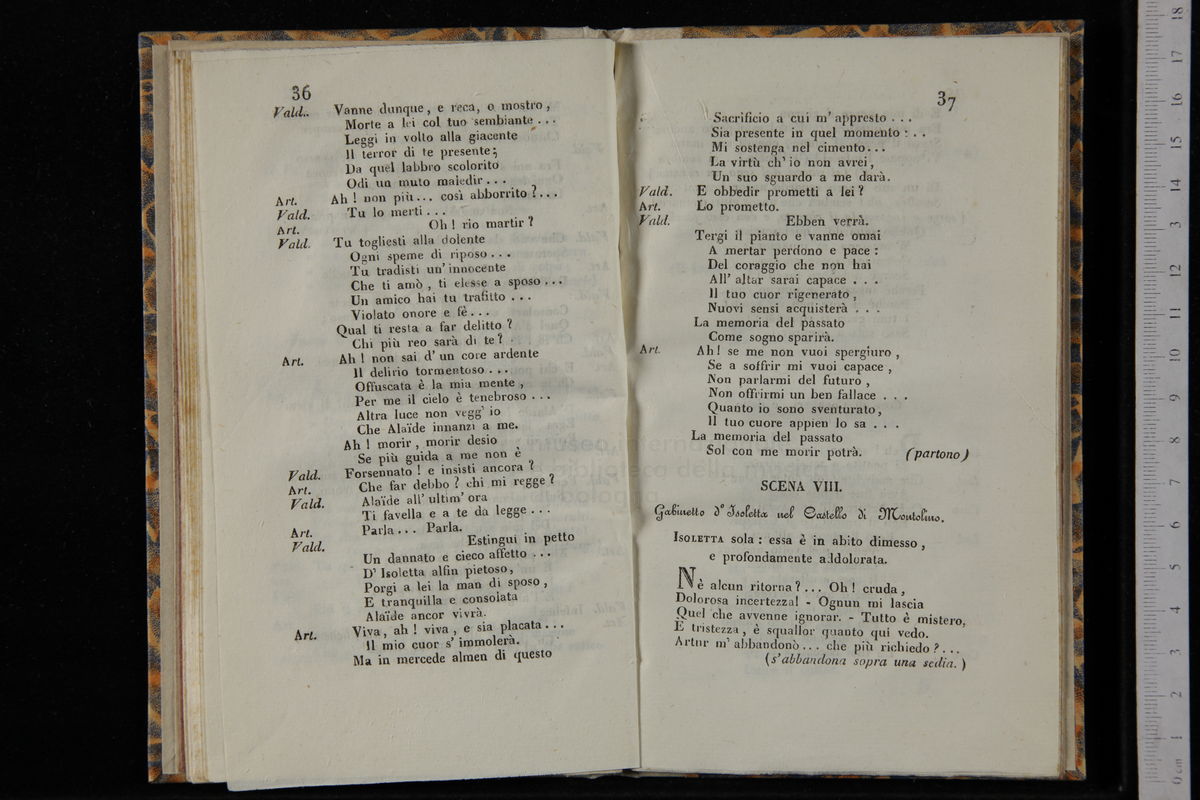 36
Vald.. Vanne dunque, e reca, o mostro,
Morte a lei col tuo sembiante...
Leggi in volto alla giacente
Il terror di te presente;
Da quel labbro scolorito
Odi un muto maledir...
Art. Ah! non più... così abborrito?...
Vald. Tu lo merti...
Art. Oh! rio martir?
Vald. Tu togliesti alla dolente
Ogni speme di riposo...
Tu tradisti un' innocente
Che ti amò, ti elesse a sposo...
Un amico hai tu trafitto...
Violato onore e fè...
Qual ti resta a far delitto?
Chi più reo sarà di te?
Art. Ah! non sai d' un core ardente
Il delirio tormentoso...
Offuscata è la mia mente,
Per me il cielo è tenebroso...
Altra luce non vegg' io
Che Alaïde innanzi a me.
Ah! morir, morir desio
Se più guida a me non è
Vald. Forsennato! e insisti ancora?
Art. Che far debbo? chi mi regge?
Vald. Alaïde all' ultim' ora
Ti favella e a te dà legge...
Art. Parla... Parla.
Vald. Estingui in petto
Un dannato e cieco affetto...
D' Isoletta alfin pietoso,
Porgi a lei la man di sposo,
E tranquilla e consolata
Alaïde ancor vivrà.
Art. Viva, ah! viva, e sia placata...
Il mio cuor s' immolerà.
Ma in mercede almen di questo
37
Sacrificio a cui m' appresto...
Sia presente in quel momento...
Mi sostenga nel cimento...
La virtù ch' io non avrei,
Un suo sguardo a me darà.
Vald. E obbedir prometti a lei?
Art. Lo prometto.
Vald. Ebben verrà.
Tergi il pianto e vanne omai
A mertar perdono e pace:
Del coraggio che non hai
All' altar sarai capace...
Il tuo cuor rigenerato,
Nuovi sensi acquisterà...
La memoria del passato
Come sogno sparirà.
Art. Ah! se me non vuoi spergiuro,
Se a soffrir mi vuoi capace,
Non parlarmi del futuro,
Non offrirmi un ben fallace...
Quanto io sono sventurato,
Il tuo cuore appien lo sa...
La memoria del passato
Sol con me morir potrà. (partono)
SCENA VIII.
Gabinetto d' Isoletta nel Castello di Montolino.
ISOLETTA sola: essa è in abito dimesso,
e profondamente addolorata.
Nè alcun ritorna?... Oh! cruda,
Dolorosa incertezza! - Ognun mi lascia
Quel che avvenne ignorar. - Tutto è mistero,
E tristezza, è squallor quanto qui vedo.
Artur m' abbandonò... che più richiedo?...
(s'abbandona sopra una sedia.)
museo internazionale
e biblioteca della musica
di bologna